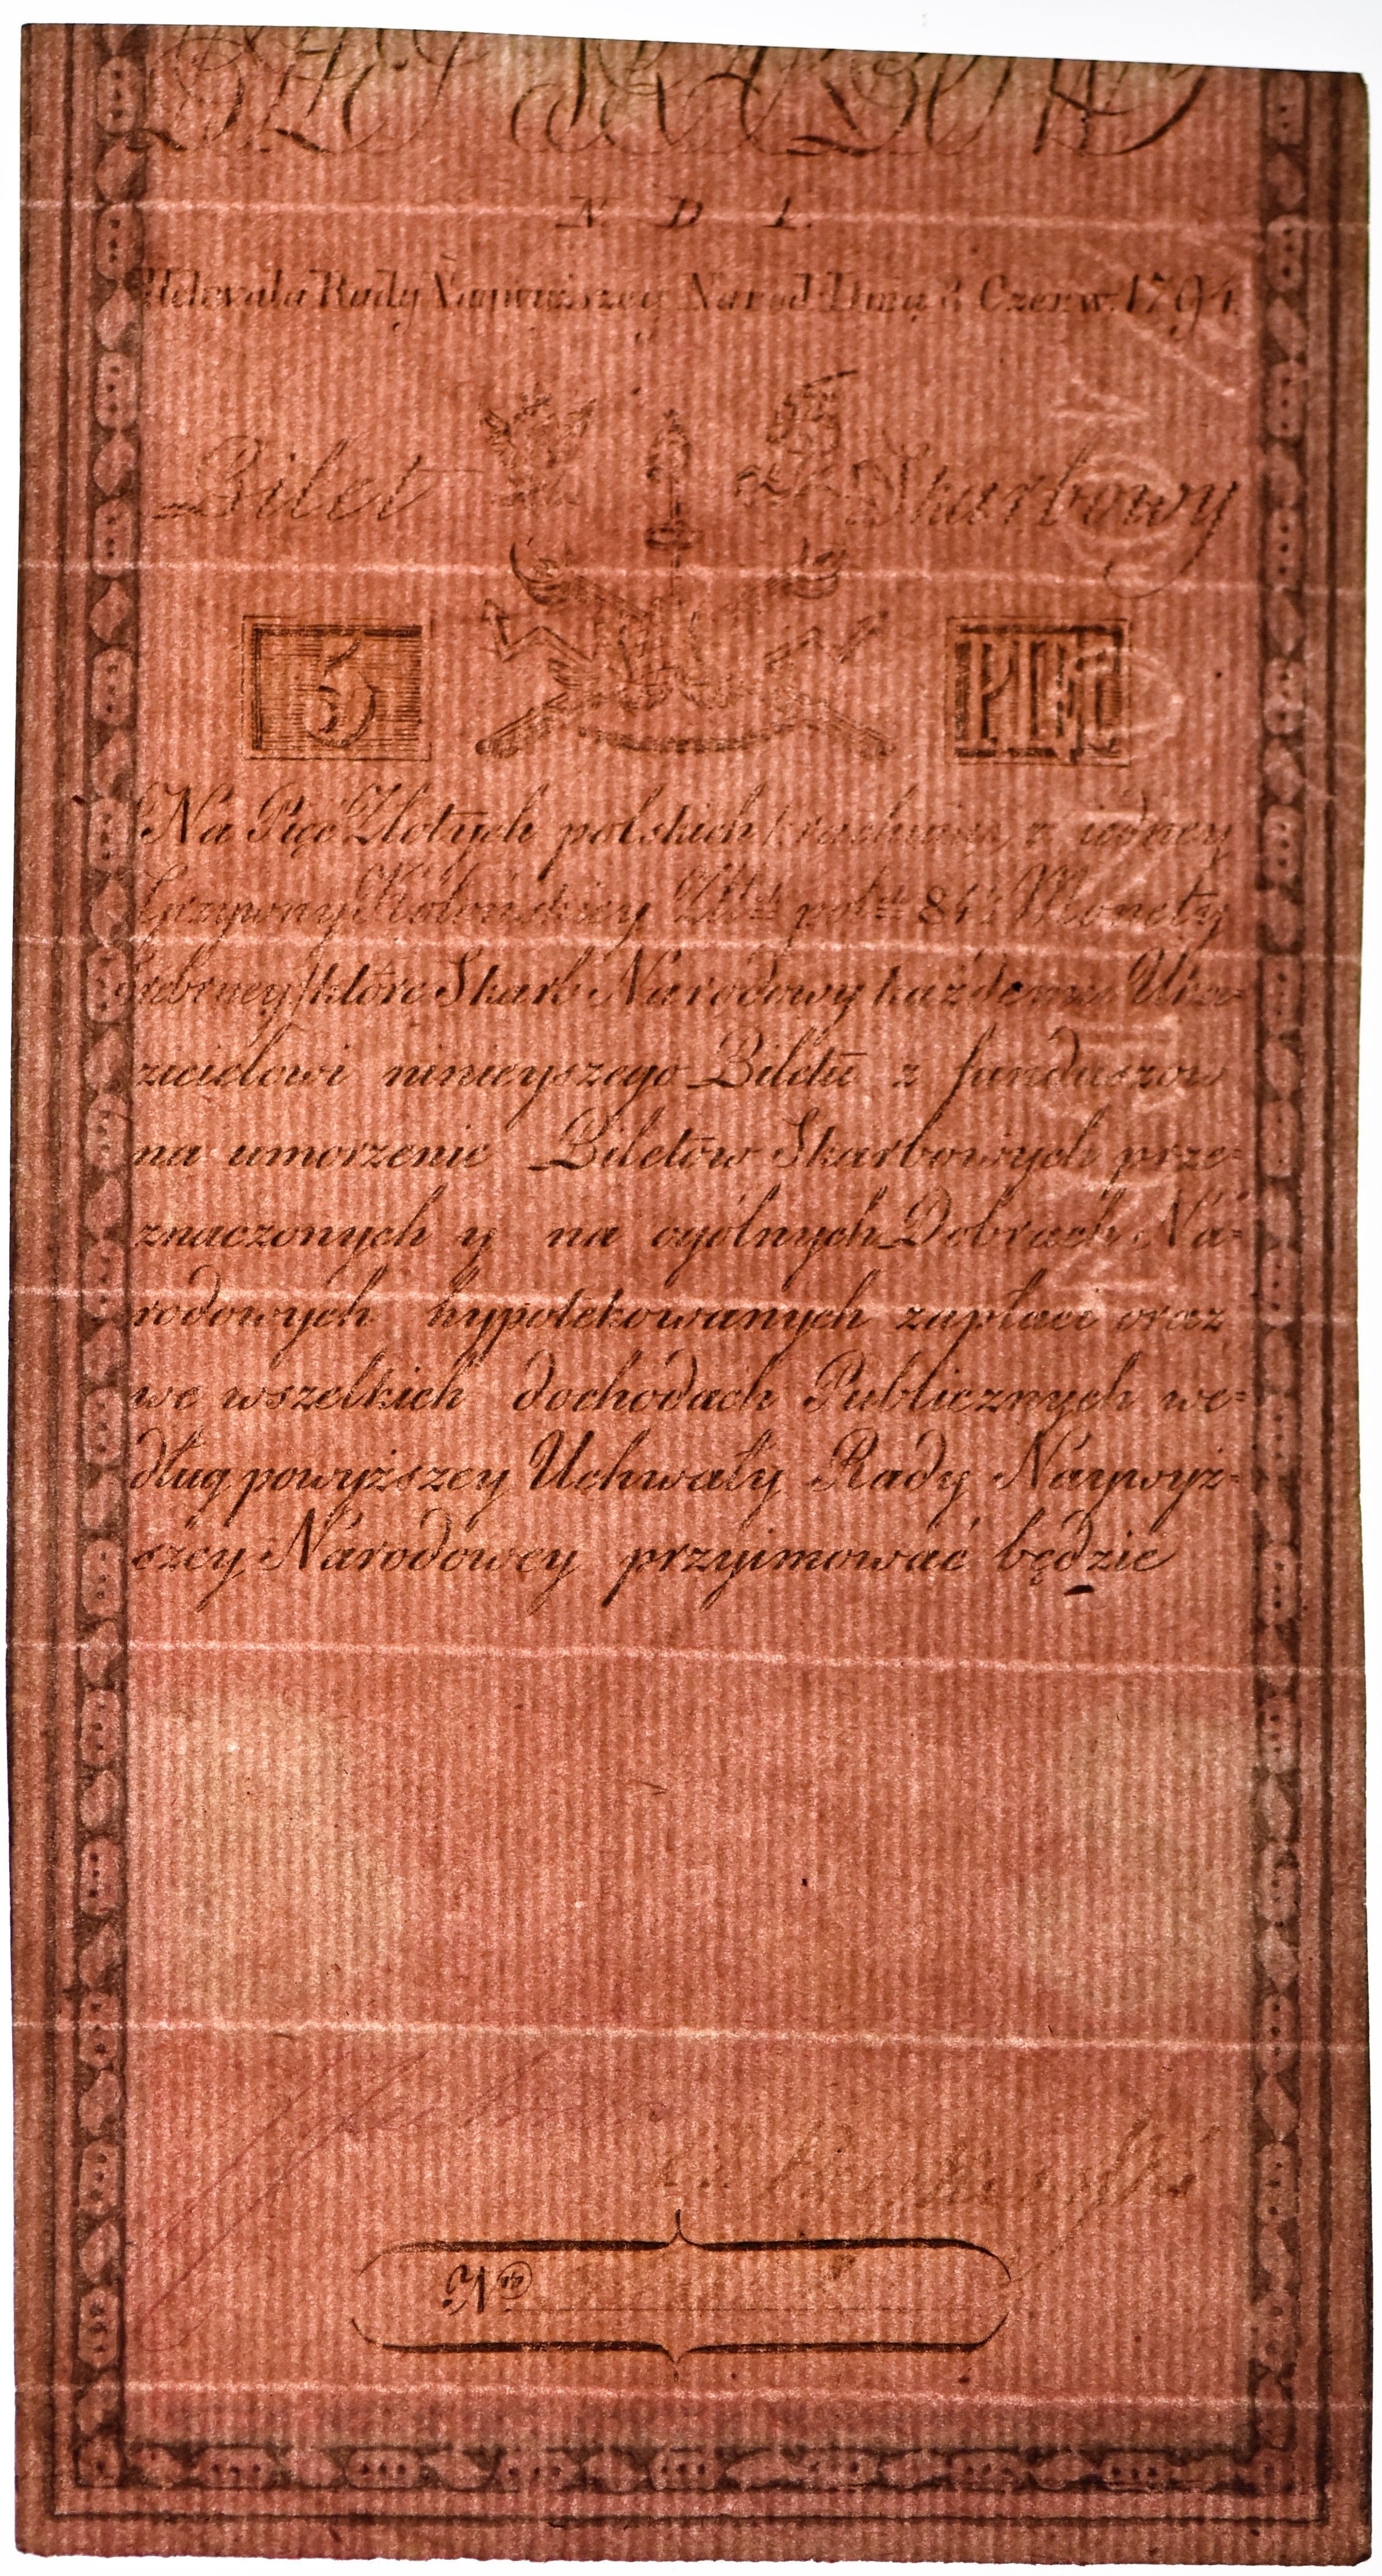 N D 1.
Uchwała Rady Naywyższey Narod: Dnia 8 Czerw: 1794.
Bilet Skarbowy
5 PIĘĆ
Na Pięć Złotych polskich rachuiąc z iedney
Grzywny Kolońskiey Zło: pol: 84½ Monety
srebrney które Skarb Narodowy każdemu Oka=
zicielowi ninieyszego Biletu z funduszow
na umorzenie Biletow Skarbowych prze=
znaczonych y na ogólnych Dobrach Na=
rodowych hypotekowanych zapłaci oraz
we wszelkich dochodach Publicznych we=
dług powyższey Uchwały Rady Naywyż=
szey Narodowey przyimować będzie
No